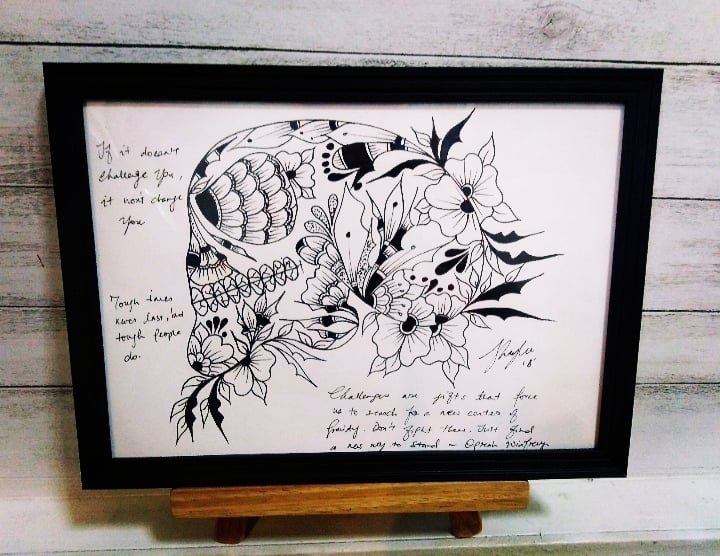 If it doesn't
challenge you,
it won't change
you
Tough times
never last, but
tough people
do.
'18
Challenges are gifts that force
us to search for a new center of
Gravity. Don't fight them. Just find
a new way to stand ~ Oprah Winfrey